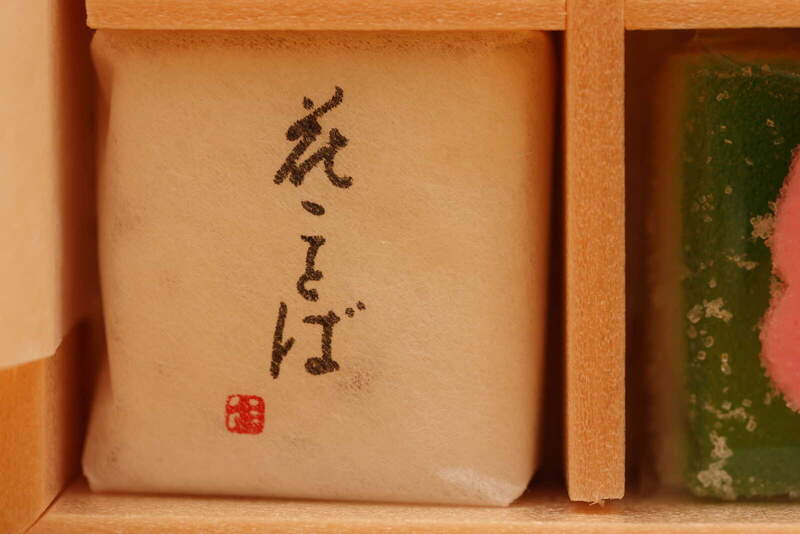 花ことば